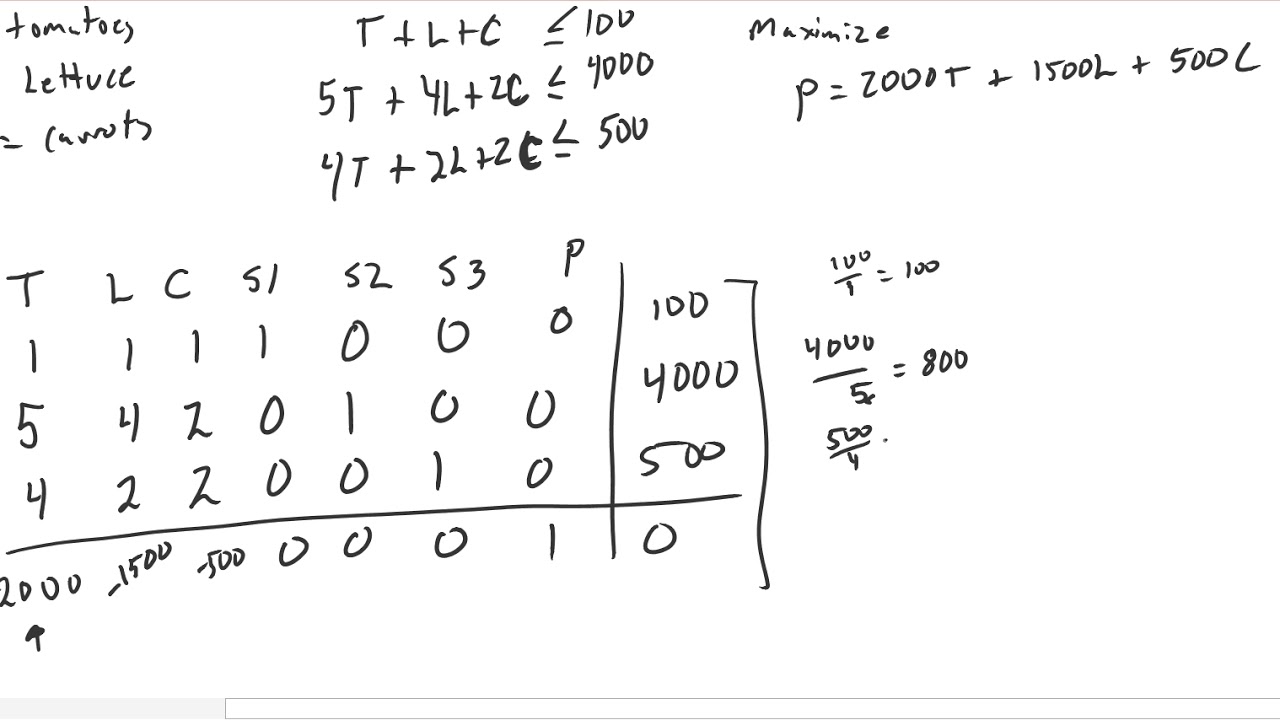 tomatoes
Lettuce
= Carrots
T + L + C ≤ 100
5T + 4L + 2C ≤ 4000
4T + 2L + 2C ≤ 500
Maximize
P = 2000T + 1500L + 500C
T L C S1 S2 S3 P
1 1 1 1 0 0 0 100
5 4 2 0 1 0 0 4000
4 2 2 0 0 1 0 500
2000 -1500 -500 0 0 0 1 0
100/1 = 100
4000/5 = 800
500/4